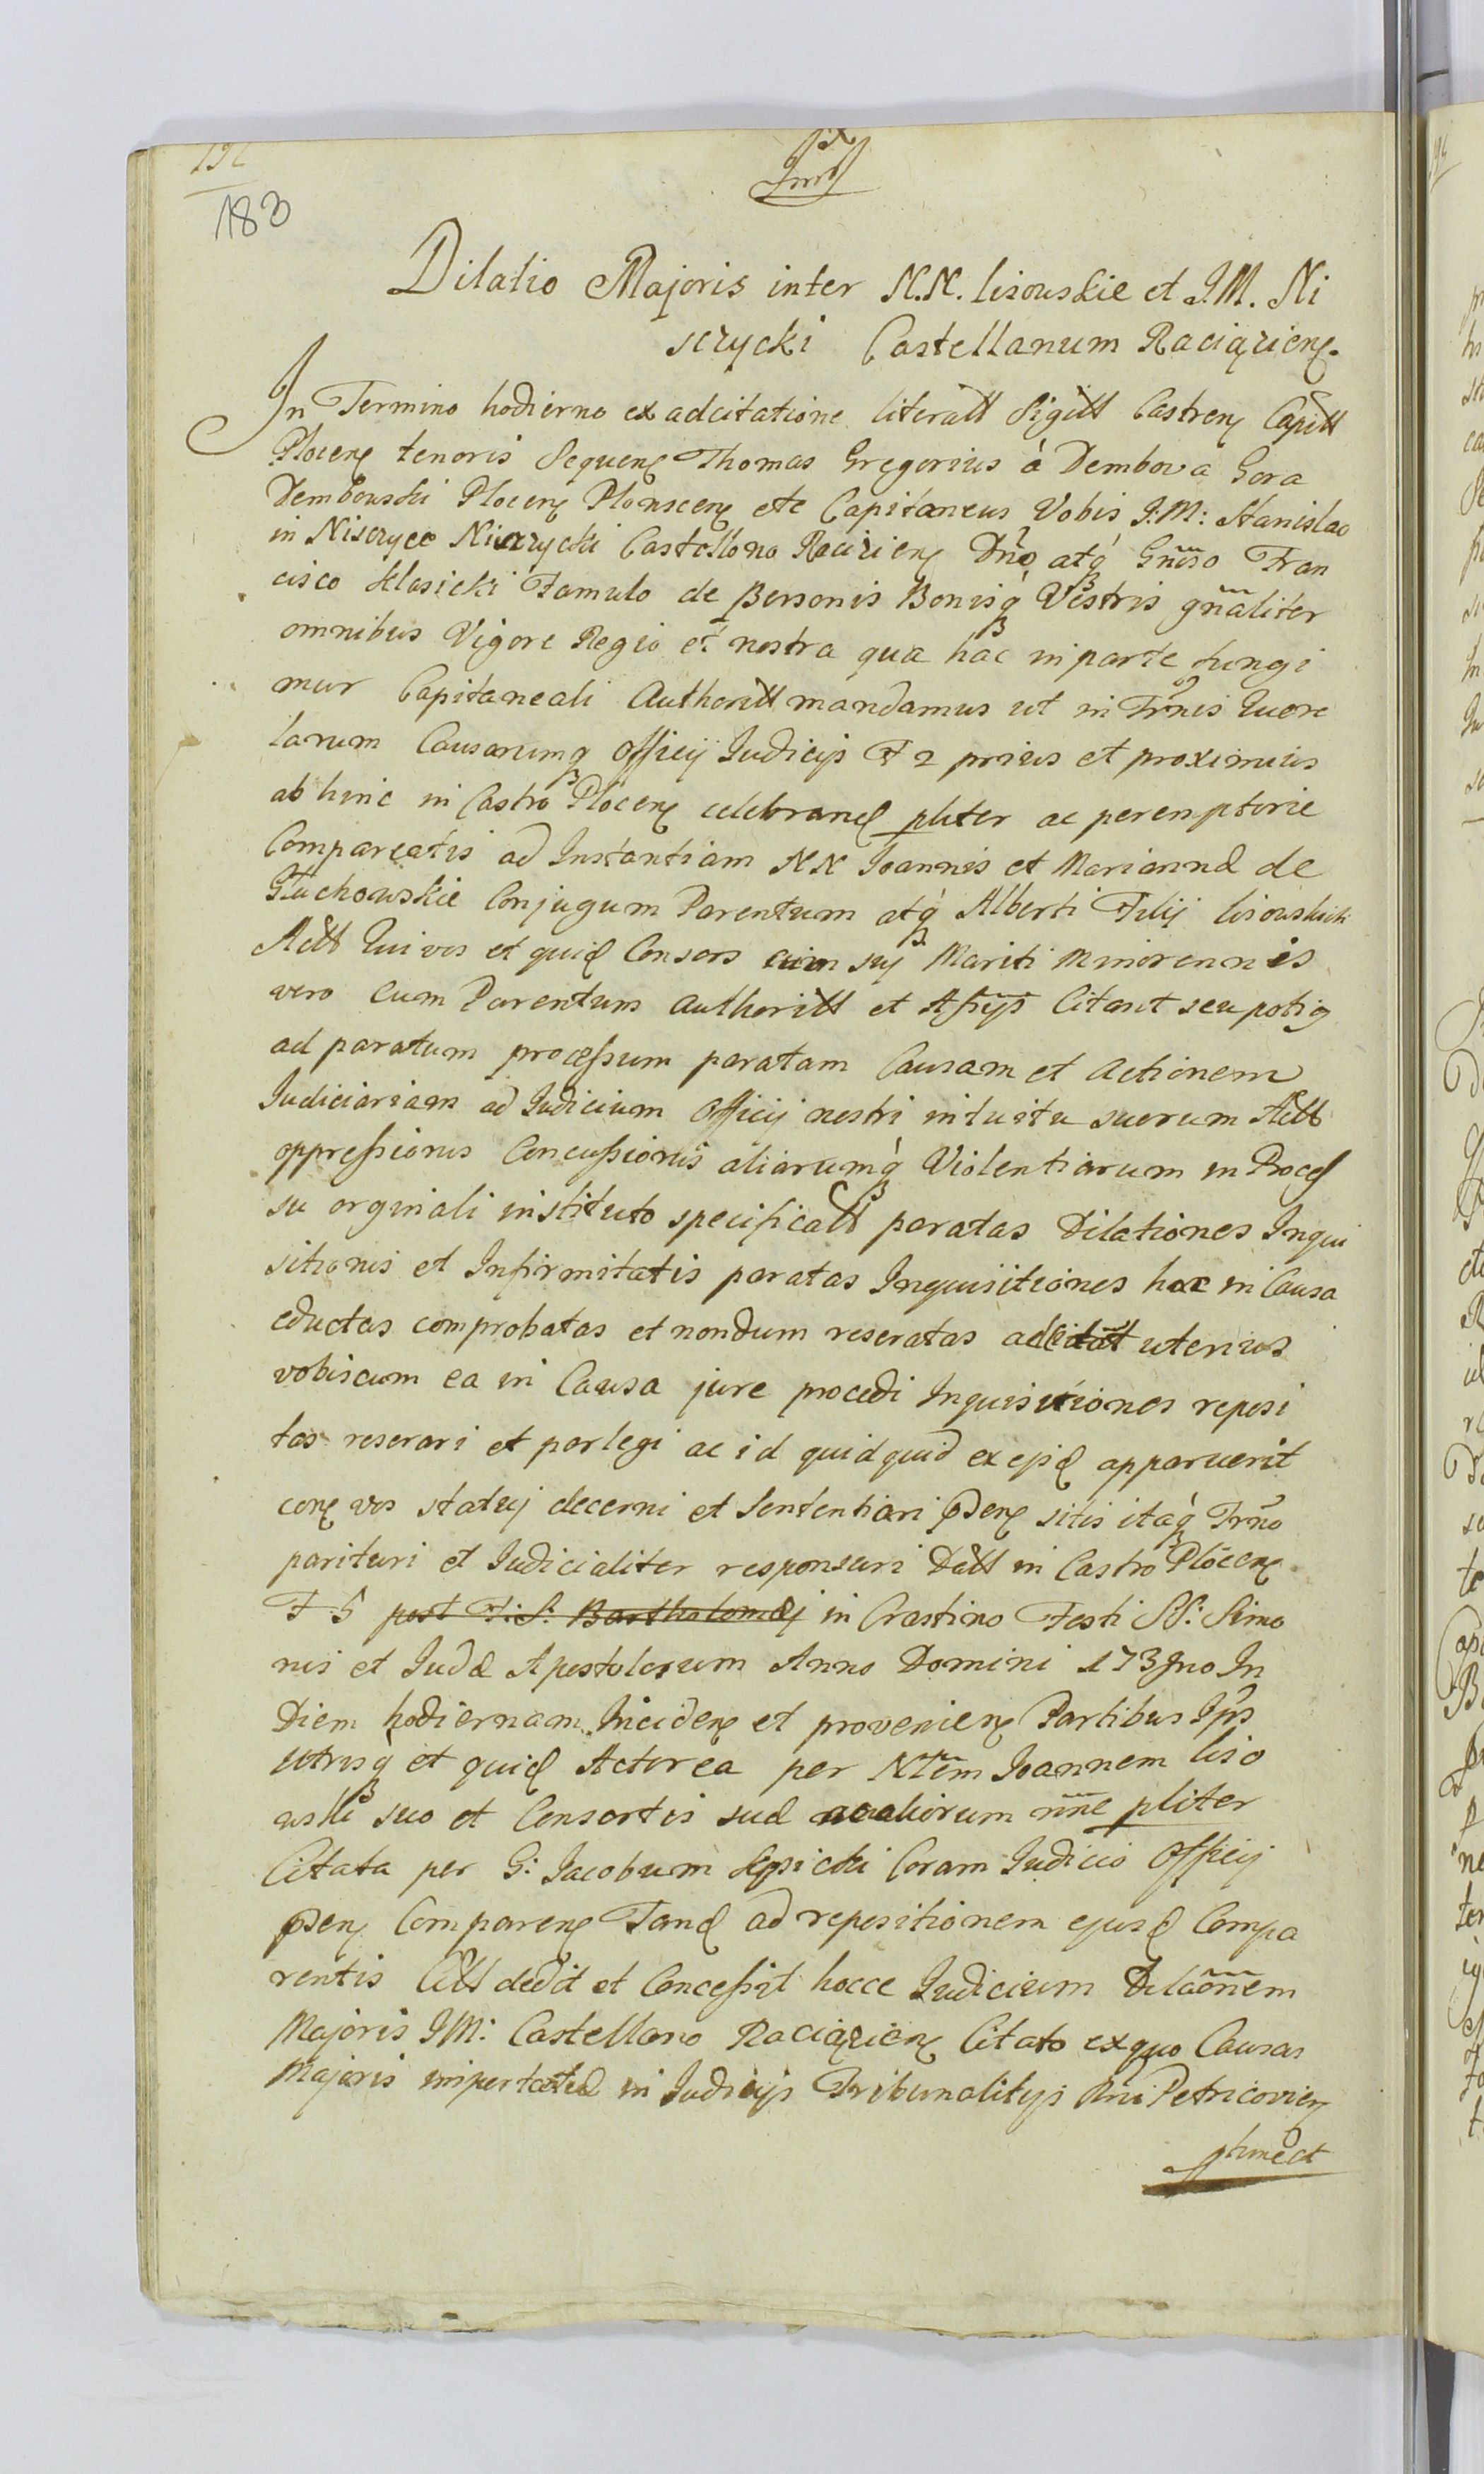 183
Dilatio Majoris inter N.N. Lisowskie et J.M. Ni
scrycki Castellanum Raciązien̄.
In Termino hodierno ex adcitatione literatt Sigill Castren̄ Capitt
Plocen̄ tenoris Sequen̄ Thomas Gregorius à Dembowa Gora
Dembowski Plocen̄ Plonscen̄ etc Capitaneus Vobis J:M: Stanislao
in Niscryce Niscrycki Castellano Racizien̄ Dn̄o atq́ Gn̄eso Fran
cisco Klosicki Famulo de Personis Bonisq́ Vestris gn̄aliter
omnibus Vigore Regio et nostra qua hac in parte fungi
mur Capitaneali Authoritt mandamus ut in Trn̄is Quere
larum Causarumq Officij Judicijs F 2 prius et proximius
ab hinc in Castro Plocen̄ celebrand pliter ac peremptorie
Compareatis ad Instantiam NN Joannis et Mariannæ de
Głuchowskie Conjugum Parentum atq́ Alberti Filij Lisowskich
Actt Qui vos et quid Consors cum sui Mariti Minorennis
vero cum Parentum authoritt et Assys Citant seu potiq
ad paratum processum paratam Causam et Actionem
Judiciariam ad Judicium Officij nostri intuitu suorum Actt
oppressionis Concussionis aliarumq́ Violentiarum in Proces
su orginali instituto specificatt paratas Dilationes Inqui
sitionis et Infirmitatis paratas Inquisitiones hac in Causa
eductas comprobatas et nondum reseratas adcitat uterius
vobiscum ea in Causa jure procedi Inquisitiones reposi
tas reserari et perlegi ac id quidquid ex ejsd apparuerit
con̄ vos statuj decerni et Sententiari pden̄ sitis itaq́ Trn̄o
parituri et Judicialiter responsuri Datt in Castro Plocen̄
F 5 post F: S: Bartholomæj in Crastino Festi SS: Simo
nis et Judæ Apostolorum Anno Domini 173gno In
Diem hodiernam Inciden̄ et provenien̄ Partibus Ips
utrisq́ et quid Actorea per Ntem Joannem Liso
wski suo et Consortis suæ ac aliorum nn̄e pliter
Citata per G: Jacobum Kosicki Coram Judicio Officij
pden̄ Comparen̄ Tand ad repositionem ejusd Compa
rentis Citt dedit et Concessit hocce Judicium Dilaon̄em
Majoris J M: Castellano Raciązien̄ Citato ex quo Causas
Majoris importatæ in Judicijs Tribunalitijs Rni Petricovien̄